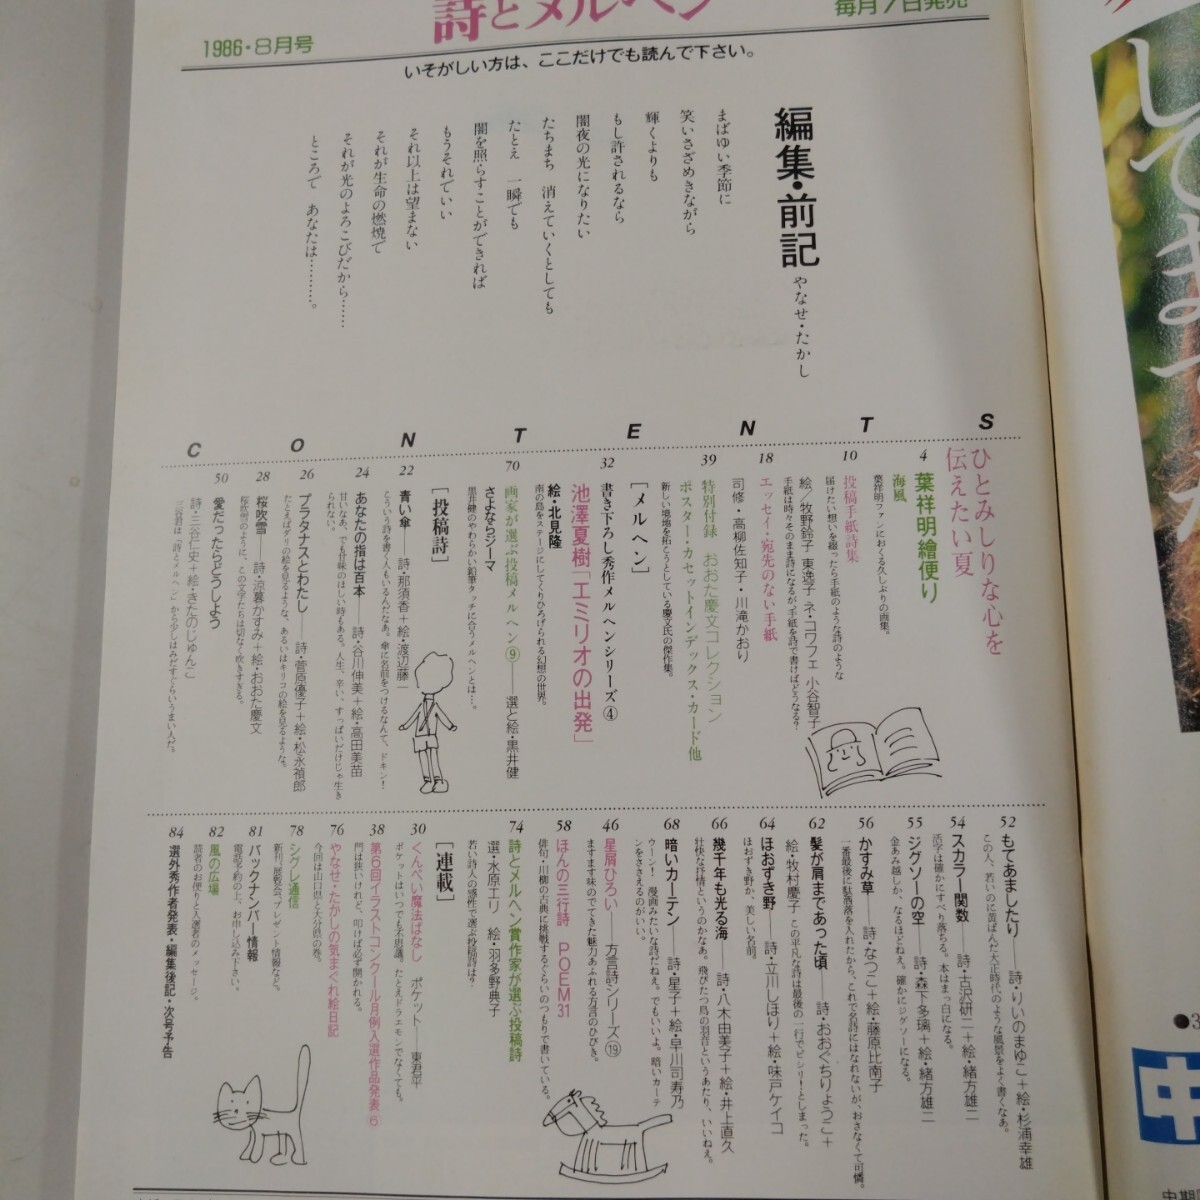 詩とメルヘン
毎月7日発売
1986・8月号
いそがしい方は、ここだけでも読んで下さい。
編集・前記
やなせ・たかし
まばゆい季節に
笑いさざめきながら
輝くよりも
もし許されるなら
闇夜の光になりたい
たちまち 消えていくとしても
たとえ 一瞬でも
闇を照らすことができれば
もうそれでいい
それ以上は望まない
それが生命の燃焼で
それが光のよろこびだから……
ところで あなたは………。
CONTENTS
ひとみしりな心を
伝えたい夏
4
葉祥明繪便り
海風
葉祥明ファンにおくる久しぶりの画集。
10
投稿手紙詩集
届けたい想いを綴ったら手紙のような詩のような
絵/牧野鈴子 東逸子 ネ・コワフェ 小谷智子
手紙は時々そのまま詩になるが、手紙を詩で書けばどうなる?
18
エッセイ・宛先のない手紙
司修・高柳佐知子・川滝かおり
39
特別付録 おおた慶文コレクション
ポスター・カセットインデックス・カード他
新しい境地を拓こうとしている慶文氏の傑作集。
[メルヘン]
32
書き下ろし秀作メルヘンシリーズ④
池澤夏樹「エミリオの出発」
絵・北見隆
南の島をステージにしてくりひろげられる幻想の世界。
70
画家が選ぶ投稿メルヘン⑨——選と絵・黒井健
さよならジーマ
黒井健のやわらかい鉛筆タッチに合うメルヘンとは…。
[投稿詩]
22
青い傘——詩・那須香+絵・渡辺藤一
こういう詩を書く人もいるんだなあ。傘に名前をつけるなんて、ドキン!
24
あなたの指は百本——詩・谷川伸美+絵・高田美苗
甘いなあ、でも甘味のほしい時もある。人生、辛い、すっぱいだけじゃ生きられない。
26
プラタナスとわたし——詩・菅原優子+絵・松永禎郎
たとえばダリの絵を見るような、あるいはキリコの絵を見るような。
28
桜吹雪——詩・涼暮かすみ+絵・おおた慶文
桜吹雪のように、この文字たちは切なく吹きすぎる。
50
愛だったらどうしよう
詩・三谷仁史+絵・きたのじゅんこ
三谷君は「詩とメルヘン」から少しはみだすぐらいうまい人だ。
52
もてあましたり——詩・りいのまゆこ+絵・杉浦幸雄
この人、若いのに黄ばんだ大正時代のような風景をよく書くなあ。
54
スカラー関数——詩・古沢研二+絵・緒方雄二
活字は確かにすべり落ちる。本はまっ白になる。
55
ジグソーの空——詩・森下多璃+絵・緒方雄二
金あみ越しか、なるほどねえ。確かにジグソーになる。
56
かすみ草——詩・なつこ+絵・藤原比南子
一番最後に駄洒落を入れたから、これで名詩にはなれないが、おさなくて可憐。
62
髪が肩まであった頃——詩・おおぐちりょうこ+
絵・牧村慶子 この平凡な詩は最後の一行でピシリ!としまった。
64
ほおずき野——詩・立川しほり+絵・味戸ケイコ
ほおずき野か、美しい名前。
66
幾千年も光る海——詩・八木由美子+絵・井上直久
壮快な抒情というのかなあ。飛びたつ鳥の羽音というあたり、いいねえ。
68
暗いカーテン——詩・星子+絵・早川司寿乃
ウーン! 漫画みたいな詩だねえ。でもいいよ。暗いカーテンをささえるのがいい。
46
星屑ひろい——方言詩シリーズ⑲
ますます味のでてきた魅力あふれる方言のひびき。
58
ほんの三行詩 POEM31
俳句・川柳の古典に挑戦するぐらいのつもりで書いている。
74
詩とメルヘン賞作家が選ぶ投稿詩
選・水原エリ 絵・羽多野典子
若い詩人の感性で選ぶ投稿詩は?
[連載]
30
くんぺい魔法ばなし ポケット——東君平
ポケットはいつでも不思議。たとえドラエモンでなくても。
38
第6回イラストコンクール月例入選作品発表⑥
門は狭いけれど、叩けば必ず開かれる。
76
やなせ・たかしの気まぐれ絵日記
今回は山口県と大分県の巻。
78
シグレ通信
新刊、展覧会、プレゼント情報など。
81
バックナンバー情報
電話予約の上、お申し込み下さい。
82
風の広場
読者のお便りと入選者のメッセージ。
84
選外秀作者発表・編集後記・次号予告